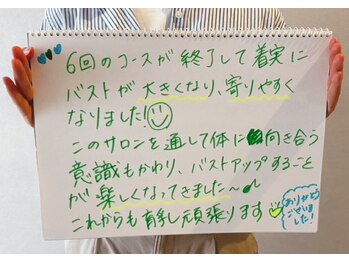 6回のコースが終了して着実に
バストが大きくなり、寄りやすく
なりました!
このサロンを通して体に向き合う
意識もかわり、バストアップすること
が楽しくなってきました〜♪
これからも育乳頑張ります
ありがとう
ございま
した!